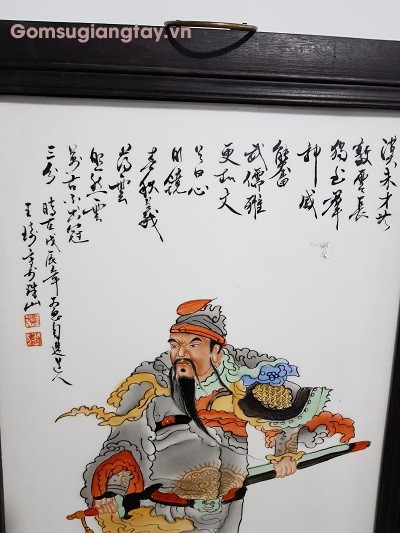 Gomsugiangtay.vn
漢末才無
敵雲長
獨出羣
神威
能奮
武儒雅
更知文
天日心
如鏡
春秋義
薄雲
昭然垂
萬古不止冠
三分 戊辰年 道人
王琦 珠山